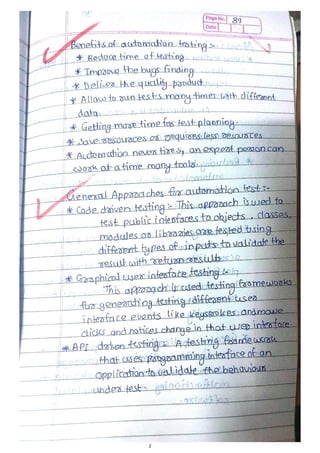 Page No. 89
Date
Benefits of automation testing :-
* Reduce time of testing
* Improve the bugs finding
* Deliver the quality product
* Allow to run tests many times with different
data
* Getting more time for test planning.
* save resources or requires less resources
* Automation never tires, an expert person can
work at a time many tools.
General Approaches for automation test :-
* Code driven testing :- This approach is used to
test public interfaces to objects, classes,
modules or libraries are tested using
different types of inputs to validate the
result with return results
* Graphical user interface testing :-
This approach is used testing frameworks
for generating testing different user
interface events like keystrokes and mouse
clicks and notices change in that user interface
* API driven testing :- A testing framework
that uses programming interface of an
application to validate the behaviour
under test.